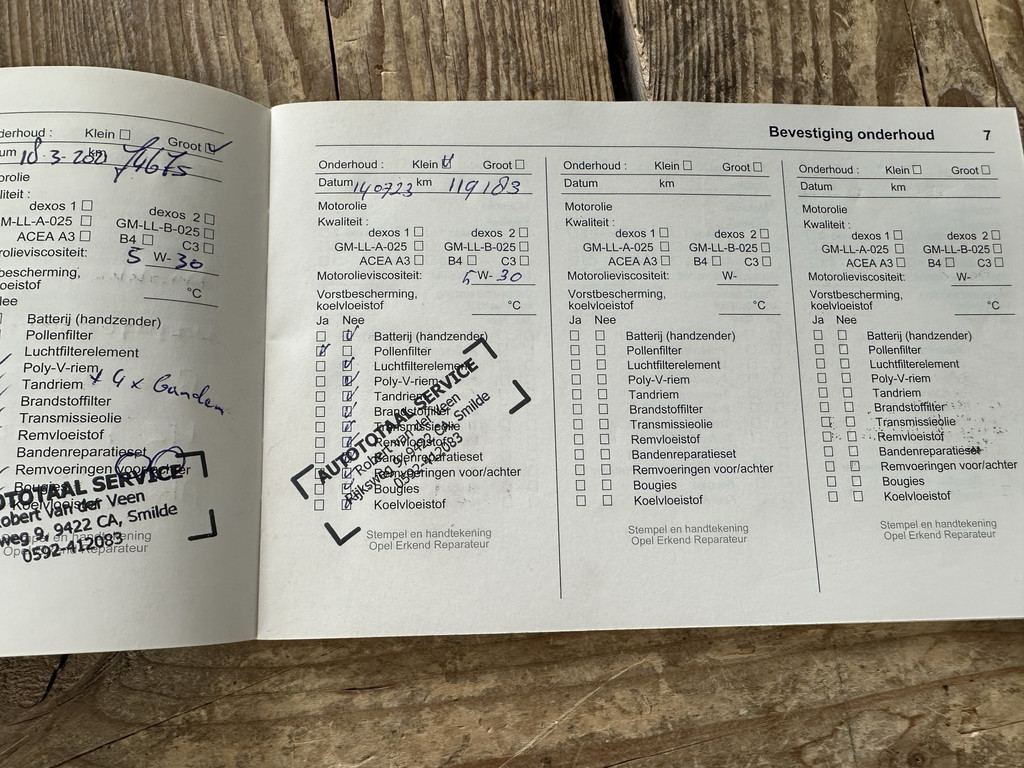 derhoud : Klein Groot
um 18-3-2021 km
orolie
liteit :
dexos 1 dexos 2
GM-LL-A-025 GM-LL-B-025
ACEA A3 B4 C3
orolieviscositeit: 5 W-30
bescherming,
oeistof °C
Nee
Batterij (handzender)
Pollenfilter
Luchtfilterelement
Poly-V-riem
Tandriem + 4 x banden
Brandstoffilter
Transmissieolie
Remvloeistof
Bandenreparatieset
Remvoeringen voor/achter
Bougies
Koelvloeistof
Stempel en handtekening
Opel Erkend Reparateur
OTOTAAL SERVICE
Robert van der Veen
weg 9, 9422 CA, Smilde
0592-412083
Bevestiging onderhoud 7
Onderhoud : Klein Groot
Datum 140723 km 119183
Motorolie
Kwaliteit :
dexos 1 dexos 2
GM-LL-A-025 GM-LL-B-025
ACEA A3 B4 C3
Motorolieviscositeit: 5 W- 30
Vorstbescherming,
koelvloeistof °C
Ja Nee
Batterij (handzender)
Pollenfilter
Luchtfilterelement
Poly-V-riem
Tandriem
Brandstoffilter
Transmissieolie
Remvloeistof
Bandenreparatieset
Remvoeringen voor/achter
Bougies
Koelvloeistof
AUTOTOTAAL SERVICE
Robert van der Veen
Rijksweg 9, 9422 CA, Smilde
0592-412083
Stempel en handtekening
Opel Erkend Reparateur
Onderhoud : Klein Groot
Datum km
Motorolie
Kwaliteit :
dexos 1 dexos 2
GM-LL-A-025 GM-LL-B-025
ACEA A3 B4 C3
Motorolieviscositeit: W-
Vorstbescherming,
koelvloeistof °C
Ja Nee
Batterij (handzender)
Pollenfilter
Luchtfilterelement
Poly-V-riem
Tandriem
Brandstoffilter
Transmissieolie
Remvloeistof
Bandenreparatieset
Remvoeringen voor/achter
Bougies
Koelvloeistof
Stempel en handtekening
Opel Erkend Reparateur
Onderhoud : Klein Groot
Datum km
Motorolie
Kwaliteit :
dexos 1 dexos 2
GM-LL-A-025 GM-LL-B-025
ACEA A3 B4 C3
Motorolieviscositeit: W-
Vorstbescherming,
koelvloeistof °C
Ja Nee
Batterij (handzender)
Pollenfilter
Luchtfilterelement
Poly-V-riem
Tandriem
Brandstoffilter
Transmissieolie
Remvloeistof
Bandenreparatieset
Remvoeringen voor/achter
Bougies
Koelvloeistof
Stempel en handtekening
Opel Erkend Reparateur